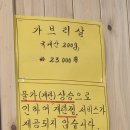 가브리살
국내산 200g
₩ 23,000원
물가(재료) 상승으로
인하여 계란찜, 서비스가
제공되지 않습니다.